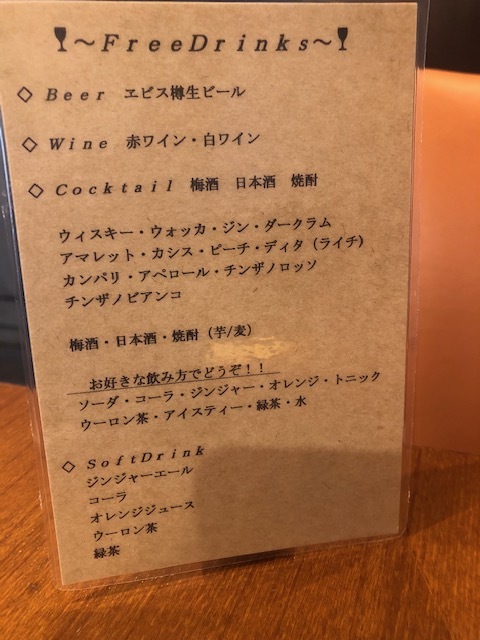 ～FreeDrinks～
◇ Beer ヱビス樽生ビール
◇ Wine 赤ワイン・白ワイン
◇ Cocktail 梅酒 日本酒 焼酎
ウィスキー・ウォッカ・ジン・ダークラム
アマレット・カシス・ピーチ・ディタ（ライチ）
カンパリ・アペロール・チンザノロッソ
チンザノビアンコ
梅酒・日本酒・焼酎（芋/麦）
お好きな飲み方でどうぞ！！
ソーダ・コーラ・ジンジャー・オレンジ・トニック
ウーロン茶・アイスティー・緑茶・水
◇ SoftDrink
ジンジャーエール
コーラ
オレンジジュース
ウーロン茶
緑茶